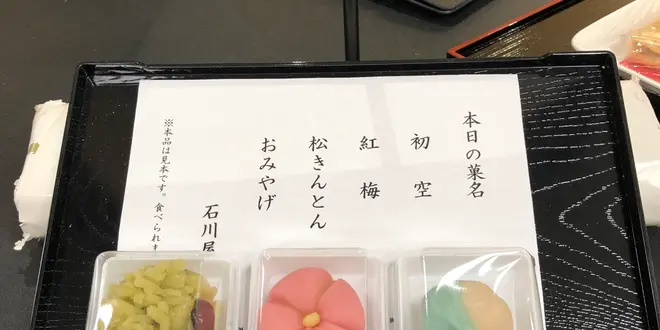 本日の菓名
初空
紅梅
松きんとん
おみやげ
石川屋
※本品は見本です。食べられま